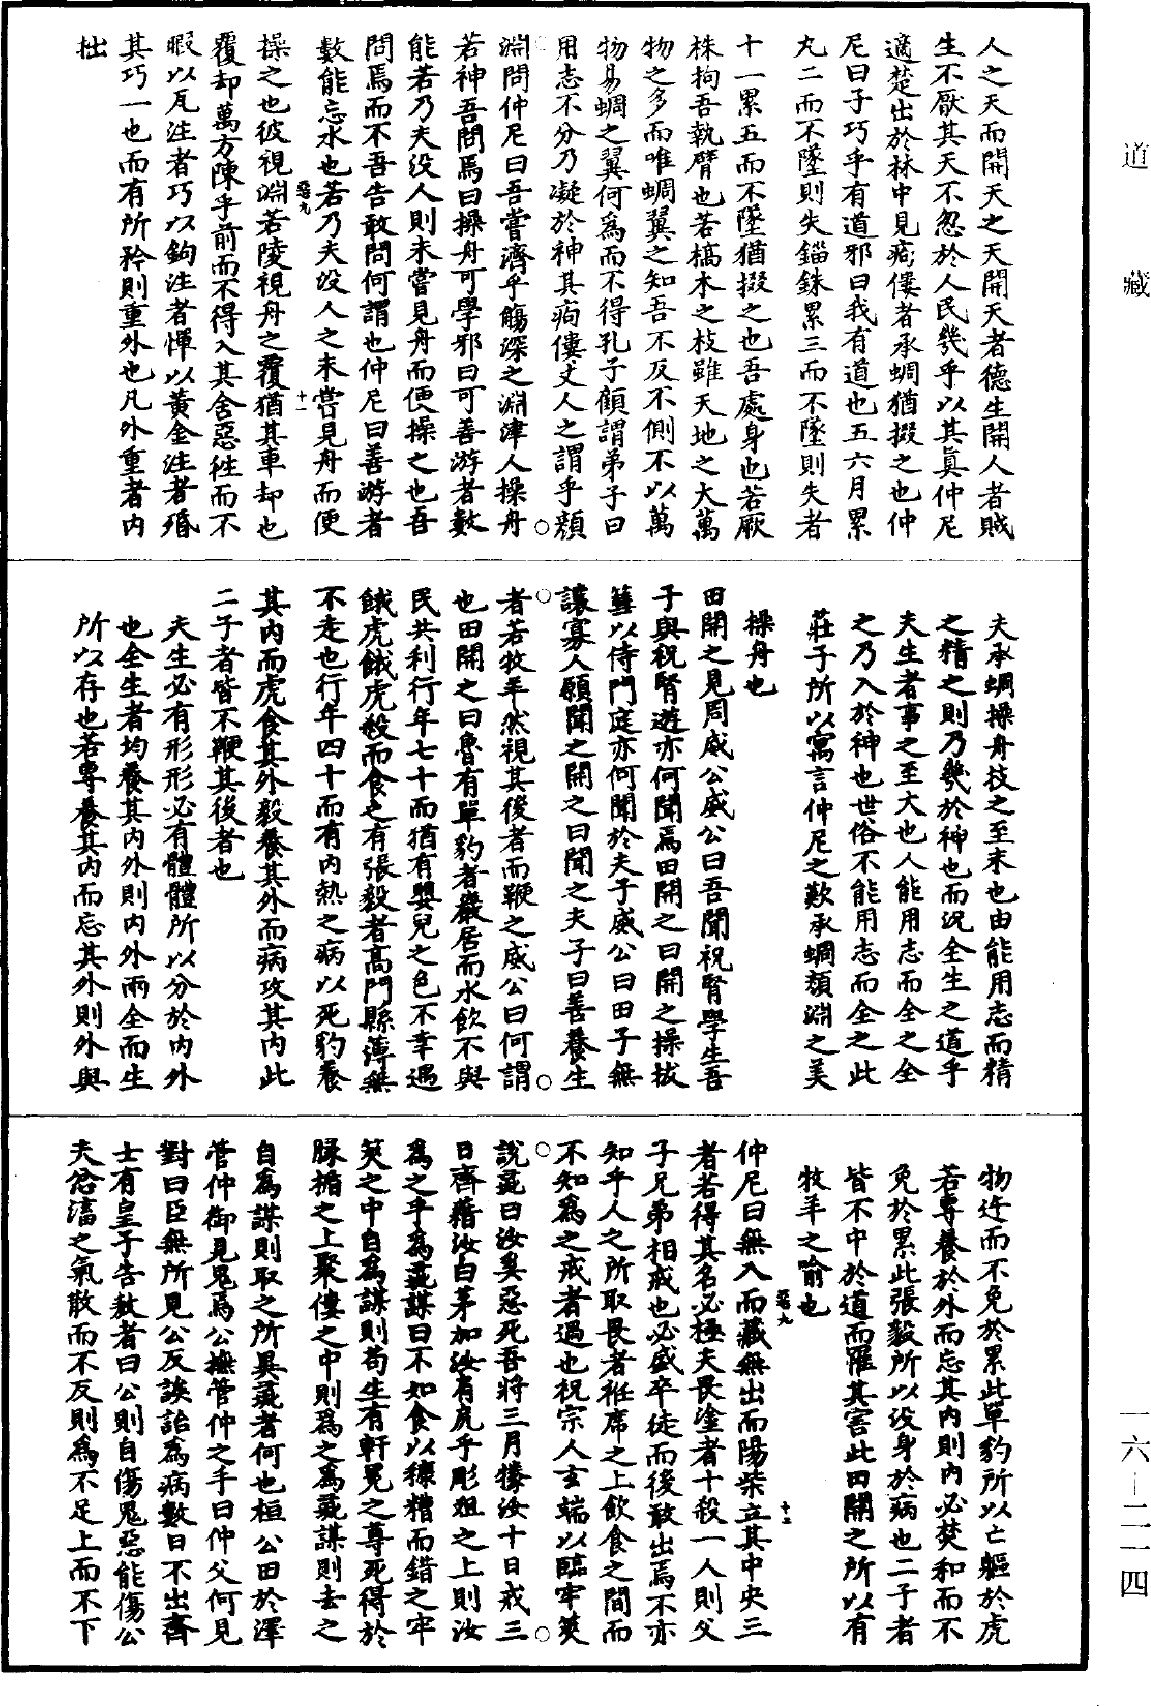 道藏
人之天而開天之天開天者德生開人者賊
生不厭其天不忽於人民幾乎以其眞仲尼
適楚出於林中見痀僂者承蜩猶掇之也仲
尼曰子巧乎有道邪曰我有道也五六月累
丸二而不墜則失錙銖累三而不墜則失者
十一累五而不墜猶掇之也吾處身也若厥
株拘吾執臂也若槁木之枝雖天地之大萬
物之多而唯蜩翼之知吾不反不側不以萬
物易蜩之翼何爲而不得孔子顧謂弟子曰
用志不分乃凝於神其痀僂丈人之謂乎顏
淵問仲尼曰吾嘗濟乎觴深之淵津人操舟
若神吾問焉曰操舟可學邪曰可善游者數
能若乃夫没人則未嘗見舟而便操之也吾
問焉而不吾告敢問何謂也仲尼曰善游者
數能忘水也若乃夫没人之未嘗見舟而便
惡九
十一
操之也彼視淵若陵視舟之覆猶其車却也
覆却萬方陳乎前而不得入其舍惡往而不
暇以瓦注者巧以鉤注者憚以黃金注者殙
其巧一也而有所矜則重外也凡外重者内
拙
夫承蜩操舟技之至末也由能用志而精
之精之則乃幾於神也而況全生之道乎
夫生者事之至大也人能用志而全之全
之乃入於神也世俗不能用志而全之此
莊子所以寓言仲尼之歎承蜩顏淵之美
操舟也
田開之見周威公威公曰吾聞祝腎學生吾
子與祝腎遊亦何聞焉田開之曰開之操拔
篲以侍門庭亦何聞於夫子威公曰田子無
讓寡人願聞之開之曰聞之夫子曰善養生
者若牧羊然視其後者而鞭之威公曰何謂
也田開之曰魯有單豹者巖居而水飲不與
民共利行年七十而猶有嬰兒之色不幸遇
餓虎餓虎殺而食之有張毅者高門縣薄無
不走也行年四十而有内熱之病以死豹養
其内而虎食其外毅養其外而病攻其内此
二子者皆不鞭其後者也
夫生必有形形必有體體所以分於内外
也全生者均養其内外則内外兩全而生
所以存也若專養其内而忘其外則外與
物迕而不免於累此單豹所以亡軀於虎
若專養於外而忘其内則内必焚和而不
免於累此張毅所以没身於病也二子者
皆不中於道而罹其害此田開之所以有
牧羊之喻也
惡九
十二
仲尼曰無入而藏無出而陽柴立其中央三
者若得其名必極夫畏塗者十殺一人則父
子兄弟相戒也必盛卒徒而後敢出焉不亦
知乎人之所取畏者袵席之上飲食之間而
不知爲之戒者過也祝宗人玄端以臨牢筴
說彘曰汝奚惡死吾將三月㹖汝十日戒三
日齊藉汝白茅加汝肩尻乎彫俎之上則汝
爲之乎爲彘謀曰不如食以糠糟而錯之牢
筴之中自爲謀則苟生有軒冕之尊死得於
腞楯之上聚僂之中則爲之爲彘謀則去之
自爲謀則取之所異彘者何也桓公田於澤
管仲御見鬼焉公撫管仲之手曰仲父何見
對曰臣無所見公反誒詒爲病數日不出齊
士有皇子告敖者曰公則自傷鬼惡能傷公
夫忿滀之氣散而不反則爲不足上而不下
一六—二一四